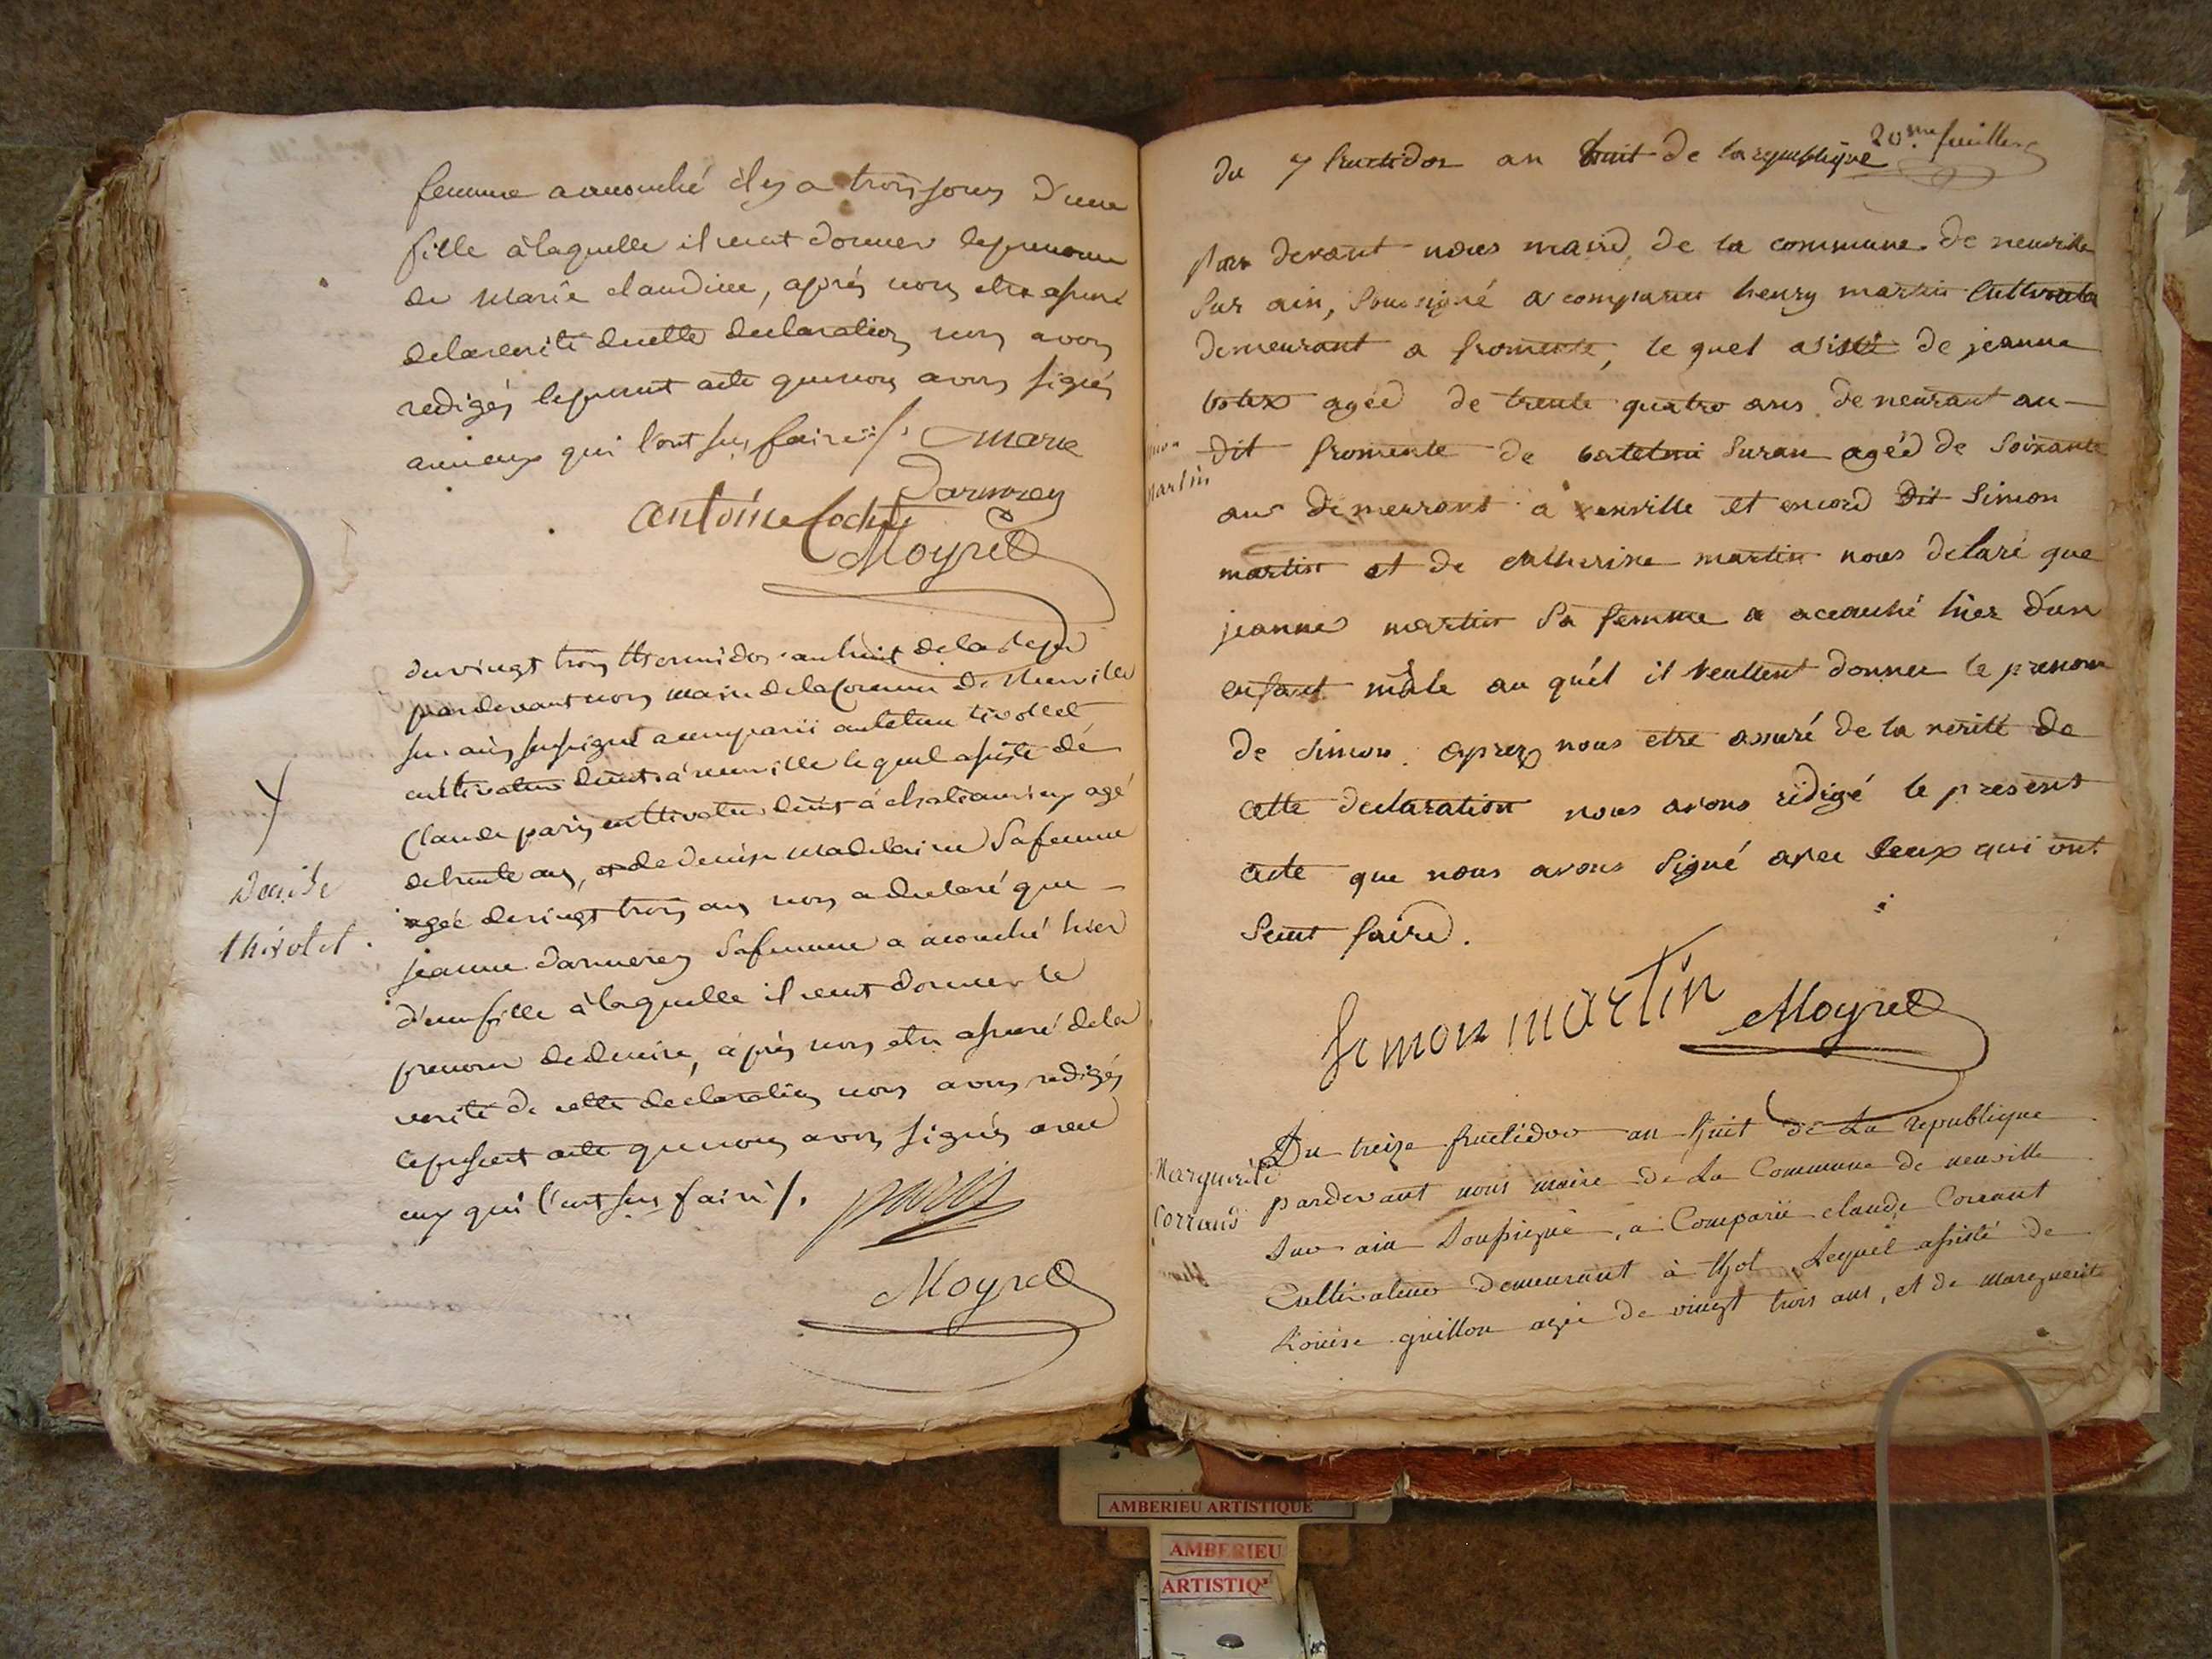 femme a accouché il y a trois jours d'une
fille à laquelle il veut donner le prenom
de marie claudine, après nous etre assuré
de la verité de cette declaration nous avons
redigés le present acte que nous avons signés
avec eux qui l'ont sus faire /. marie
Darmerey
antoine Cochet
Moyret
du vingt trois thermidor an huit de la repu
pardevant nous maire de la Commune de Neuville
sur ain soussigné a comparü tivollet
cultivateur demt à neuville lequel assisté de
Claude paris cultivateur demt à agé
de trente ans, et de denise madelaine sa femme
agée de vingt trois ans nous a declaré que
jeanne darmerey sa femme a accouché hier
d'une fille à laquelle il veut donner le
prenom de denise, après nous etre assuré de la
verité de cette declaration nous avons redigés
le present acte que nous avons signés avec
eux qui l'ont sus faire /.
paris
Moyret
Denise
thivolet
20.me feuillet
du 7 fructidor an huit de la republique
par devant nous maire de la commune de neuville
sur ain, soussigné a comparu henry martin
demeurant a fromente, le quel asisté de jeanne
agée de trente quatre ans demeurant au
dit fromente de suran agéé de soixante
ans demeurant a neuville et encore dit simon
martin et de catherine martin nous delaré que
jeanne martin sa femme a acouché hier d'un
enfant mâle au quél il veullent donner le prenom
de simon. aprez nous etre assuré de la verité de
cette declaration nous avons rédigé le present
acte que nous avons signé avec ceux qui ont
seut faire.
martin
simon martin
Moyret
Du treize fructidor an huit de La republique
pardevant nous maire de La Commune de neuville
sur ain soussigné, a Comparü claude Corrant
Cultivateur demeurant à thol, Lequel assisté de
Louise guillon agée de vingt trois ans, et de marguerite
Marguerite
Corrand
AMBERIEU ARTISTIQUE
AMBERIEU
ARTISTIQ